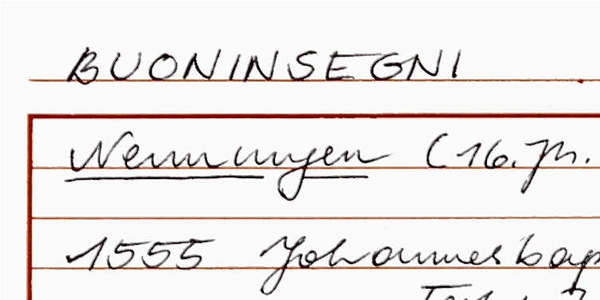 BUONINSEGNI
Nennungen (16. Jh.
1555 Johannes bap